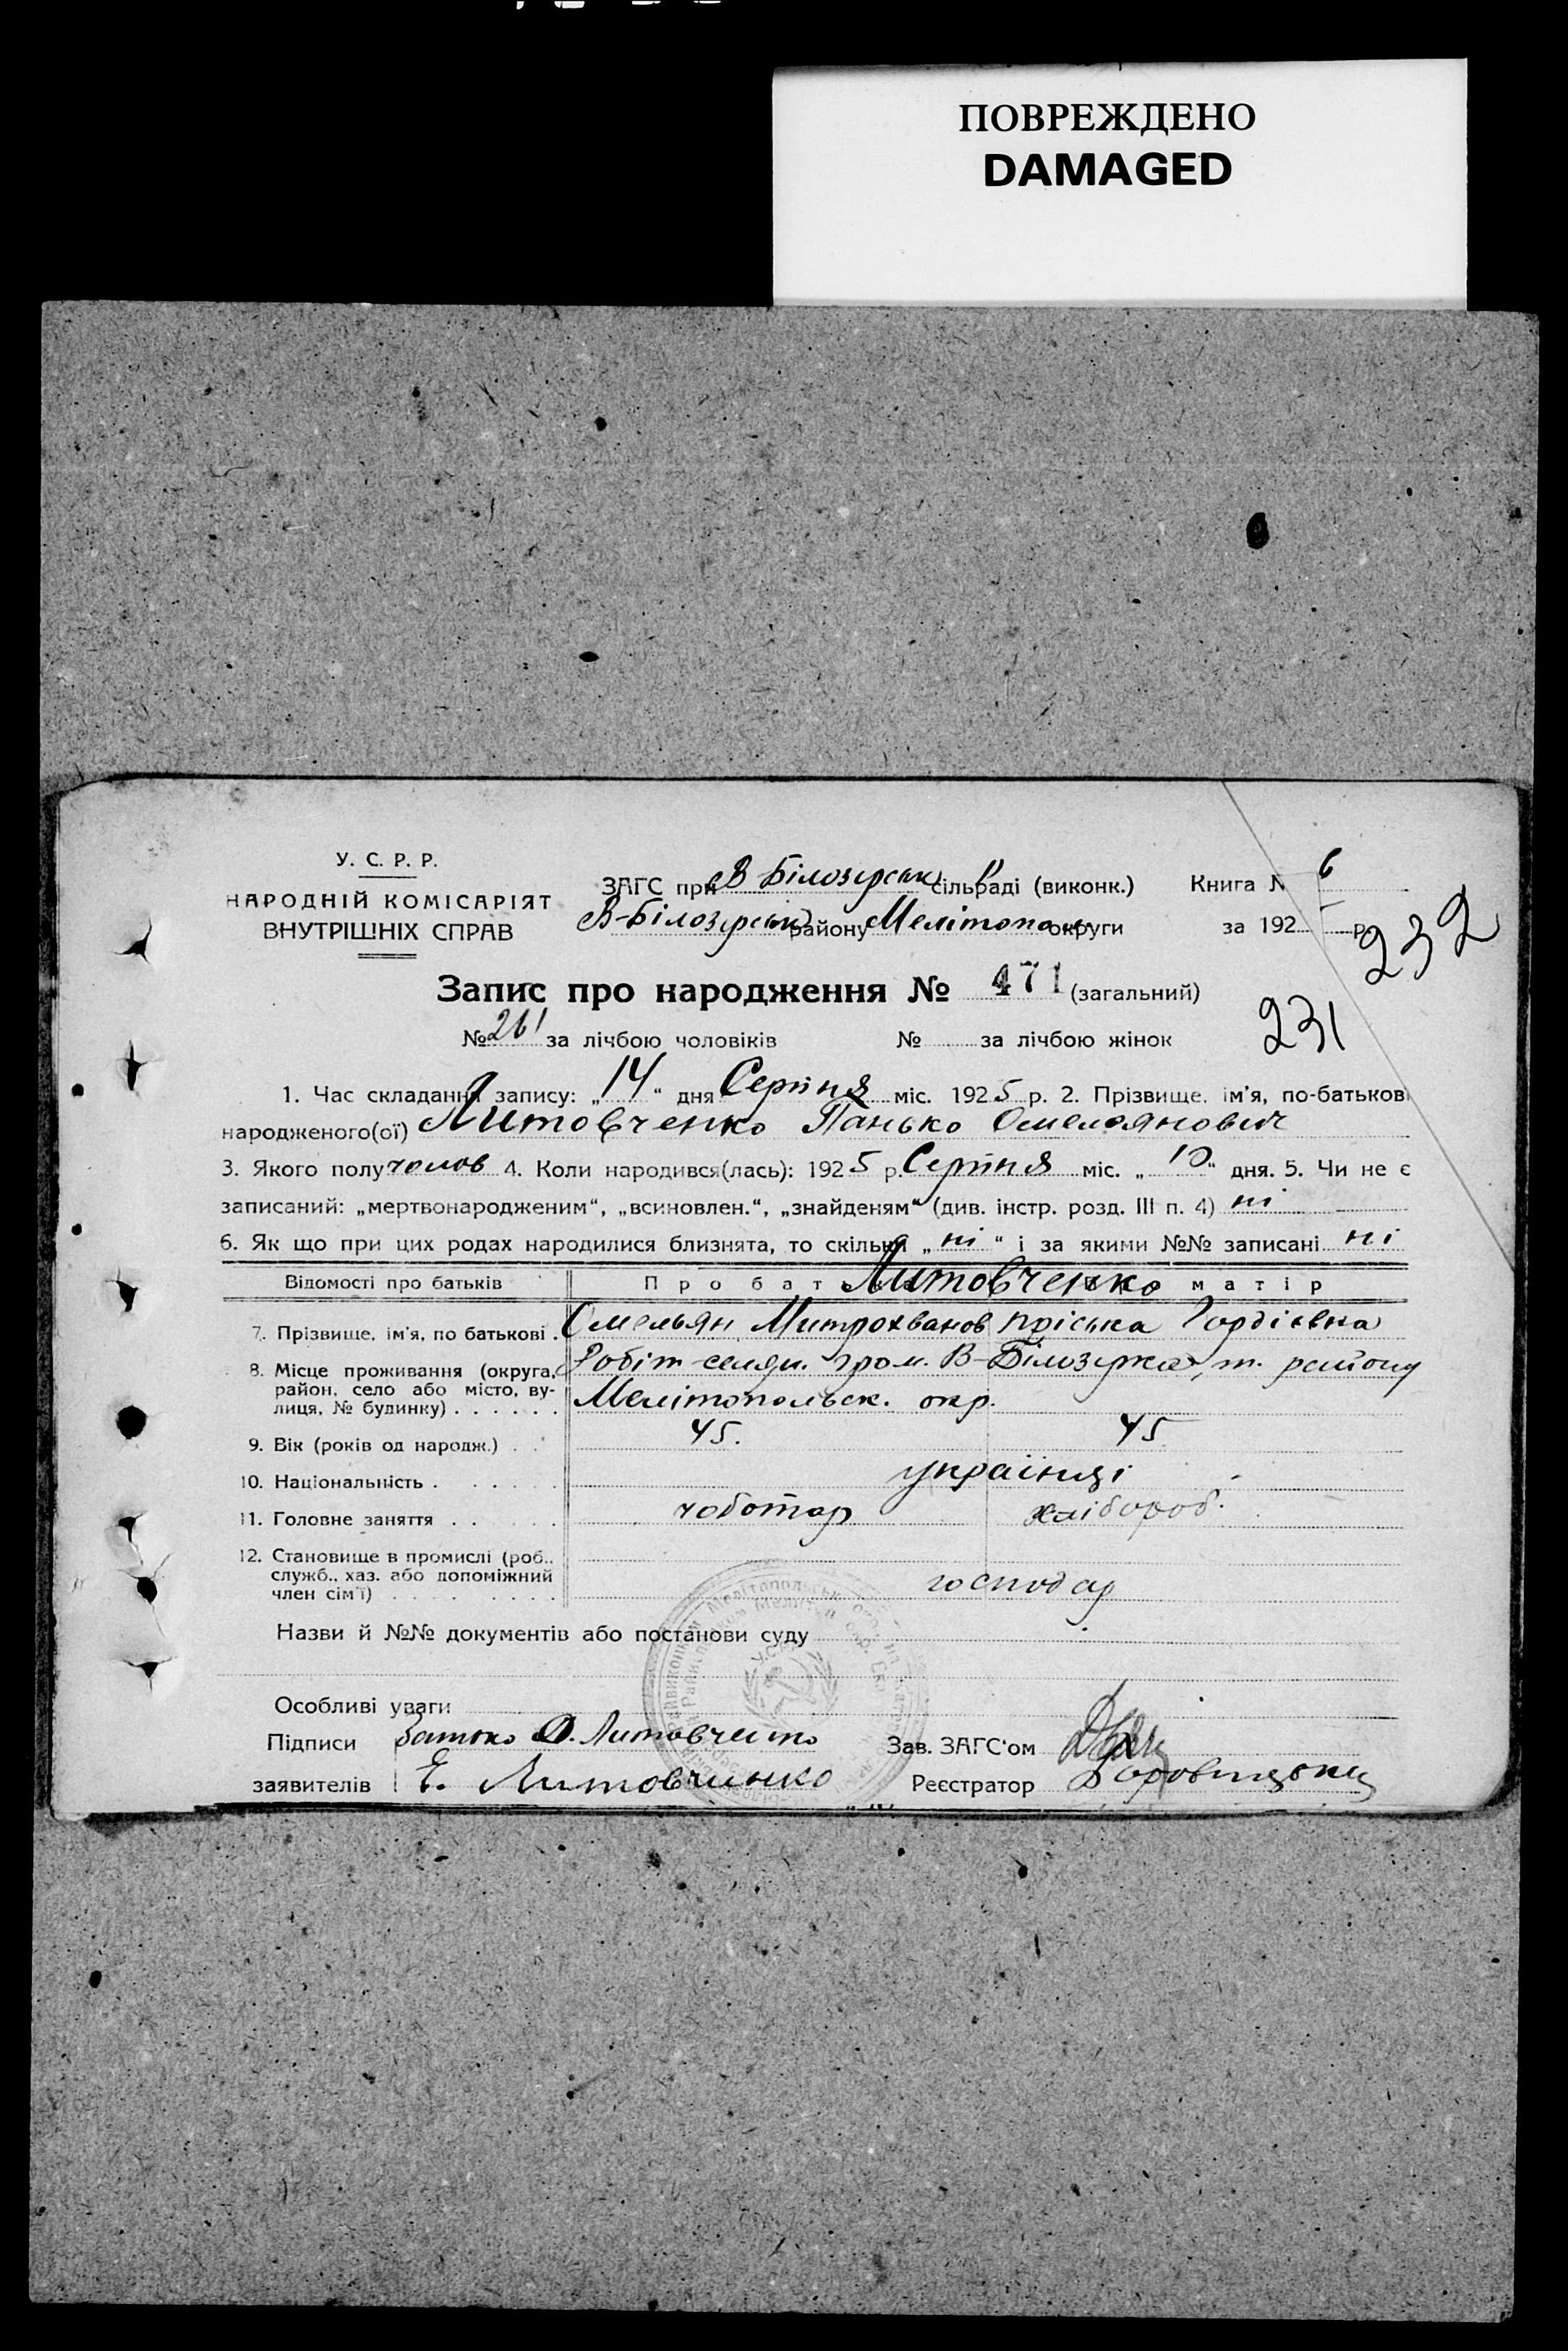 ПОВРЕЖДЕНО
DAMAGED
У. С. Р. Р.
НАРОДНІЙ КОМІСАРІЯТ
ВНУТРІШНІХ СПРАВ
ЗАГС при В Білозерськ сільраді (виконк.) Книга № 6
В-Білозерськ району Мелітопольськ округи за 192 р.
232
Запис про народження № 471 (загальний)
№ 261 за лічбою чоловіків № за лічбою жінок
231
1. Час складання запису: „14“ дня Серпня міс. 1925 р. 2. Прізвище, ім'я, по-батькові
народженого(ої) Литовченко Панько Омелянович
3. Якого полу чолов 4. Коли народився(лась): 1925 р. Серпня міс. „10“ дня. 5. Чи не є
записаний: „мертвонародженим“, „всиновлен.“, „знайденям“ (див. інстр. розд. III п. 4) ні
6. Як що при цих родах народилися близнята, то скільки „ні“ і за якими №№ записані ні
Відомості про батьків Про бат матір
Литовченко
7. Прізвище, ім'я, по батькові . Омельян Митрохванов Пріська Гордієвна
8. Місце проживання (округа, район, село або місто, вулиця, № будинку) . . . . . .
Робіт-селян. гром. В-Білозерка, т. району
Мелітопольськ. окр.
9. Вік (років од народж.) . . 45. 45
10. Національність . . . . . . українці
11. Головне заняття . . . . чоботар хлібороб.
12. Становище в промислі (роб., служб., хаз. або допоміжний член сім'ї) . . . . . . . . . господар
Назви й №№ документів або постанови суду
Особливі уваги
Підписи Литовченко Зав. ЗАГС'ом
заявителів Е. Литовчинко Реєстратор